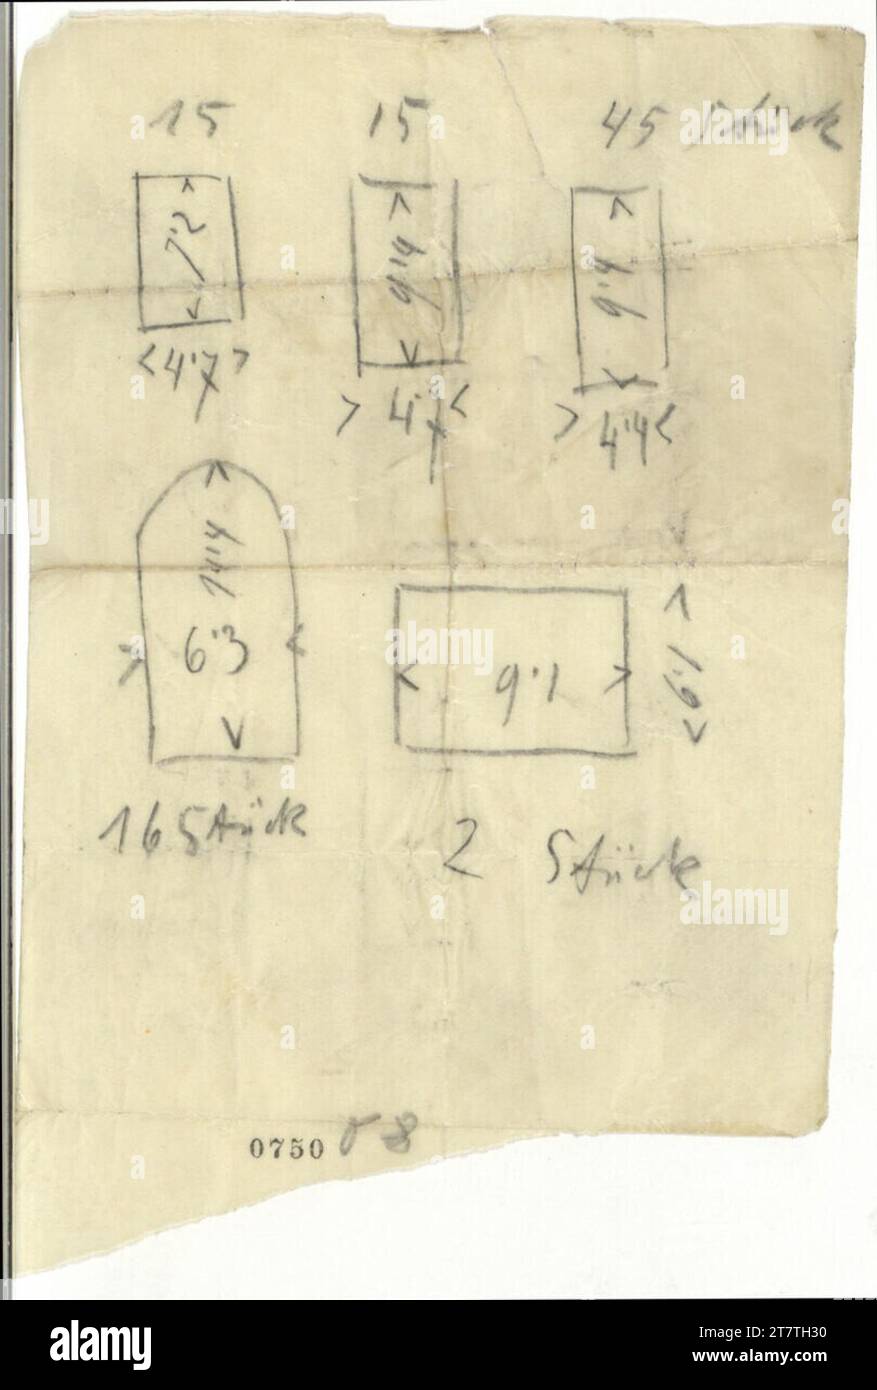 15 15 45 Stück
7.2 9.4 9.4
<4.7> >4.7< >4.4<
14.4
6.3
9.1 6.1
16 Stück
2 Stück
0750
alamy
Image ID: 2T7TH30
www.alamy.com